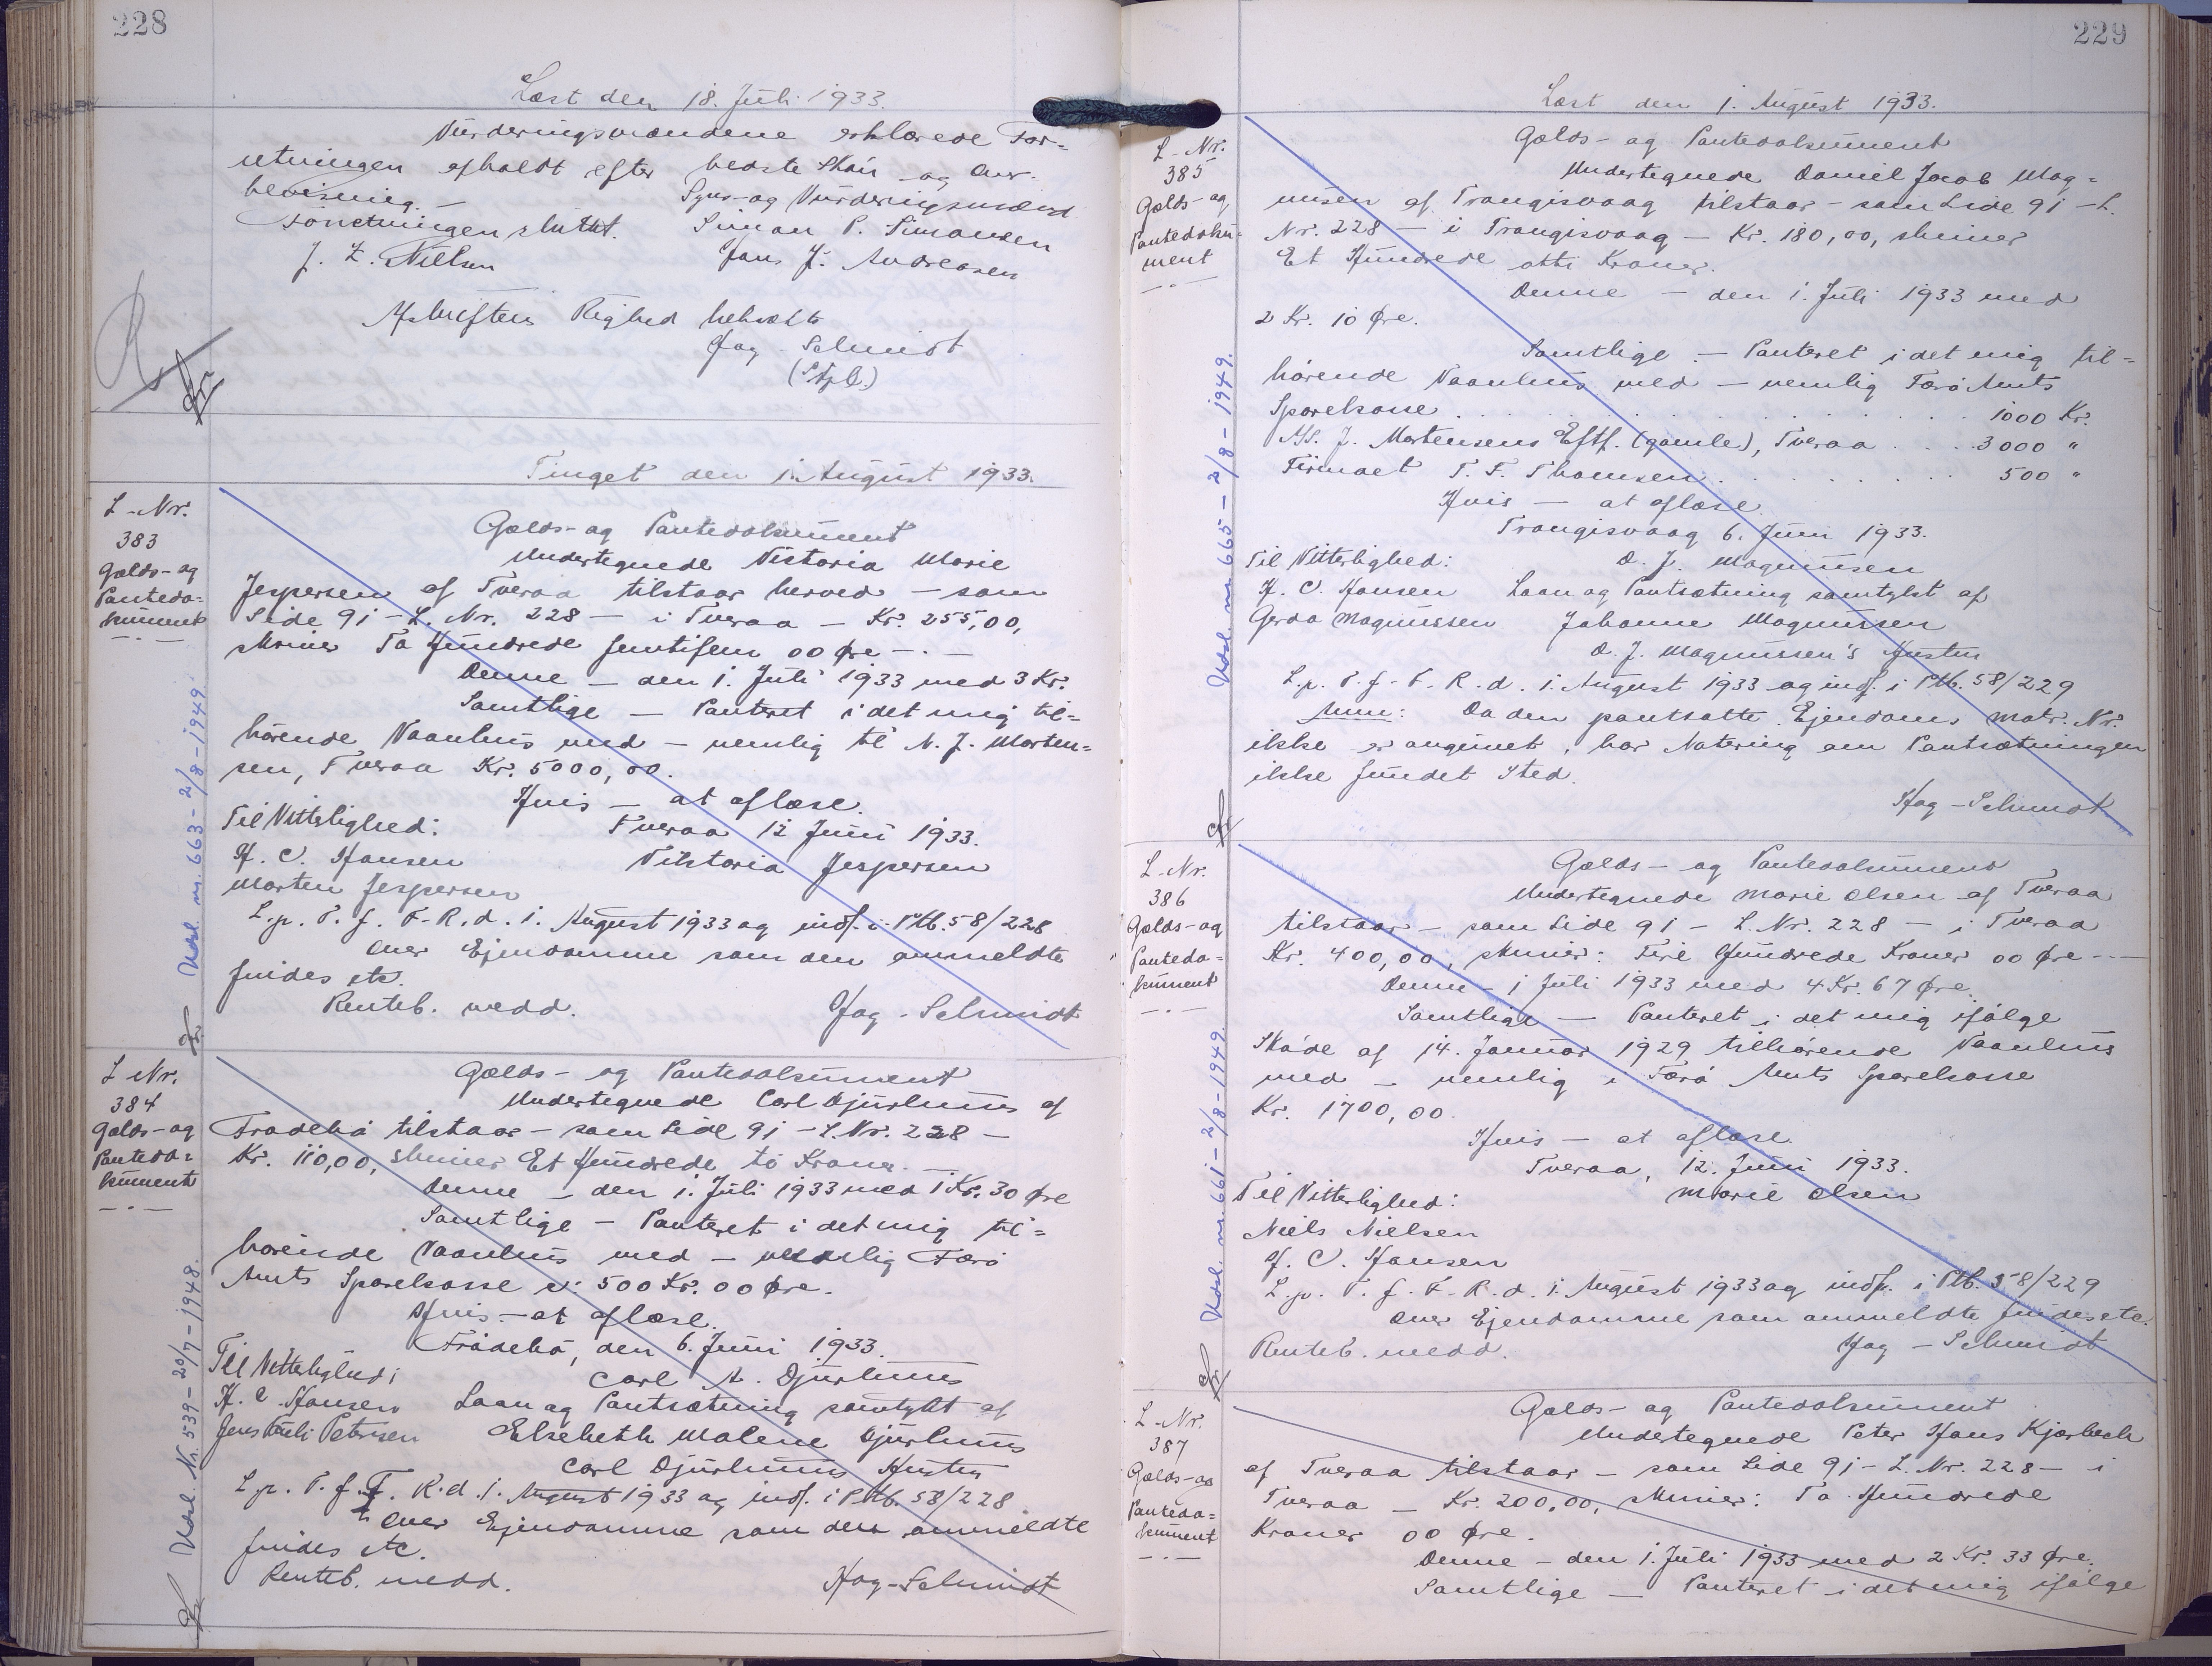 228
Læst den 18. Juli 1933.
Vurderingsmændene erklærede For-
retningen afholdt efter bedste Skøn og Over-
bevisning. —
Forretningen sluttet.
Syns- og Vurderingsmænd
J. Z. Nielsen
Simon P. Simonsen
Jans J. Andreasen
Afskriftens Rigtighed bekræftes
Hag-Schmidt
(Stpl.)
Tinget den 1. August 1933.
L-Nr.
383
Gælds- og
Pantedo=
kument
Udsl. nr. 663 - 2/8 - 1949.
Gælds- og Pantedokument
Undertegnede Victoria Marie
Jespersen af Tveraa tilstaar herved — som
Side 91 - L. Nr. 228 — i Tveraa — Kr. 255,00,
skriver To Hundrede femtifem 00 Øre — . —
Denne — den 1. Juli 1933 med 3 Kr.
Samtlige — Panteret i det mig til=
hørende Vaanhus med — nemlig til N. J. Morten=
sen, Tveraa Kr. 5000,00.
Hvis — at aflæse.
Til Vitterlighed:
Tveraa 12 Juni 1933.
H. C. Hansen
Viktoria Jespersen
Morten Jespersen
L.p. T. f. F. R. d. 1. August 1933 og indf. i Ptb. 58/228
Over Ejendomme som den anmeldte
findes etc.
Renteb. medd.
Hag-Schmidt
L-Nr.
384
Gælds- og
Pantedo=
kument
Udsl. Nr. 539 - 20/7 - 1948.
Gælds- og Pantedokument
Undertegnede Carl Djurhuus af
Frodebø tilstaar — som Side 91 - L. Nr. 228 —
Kr. 110,00, skriver Et Hundrede ti Kroner. —
Denne — den 1. Juli 1933 med 1 Kr. 30 Øre
Samtlige — Panteret i det mig til=
hørende Vaanhus med — nemlig Færø
Amts Sparekasse 500 Kr. 00 Øre.
Hvis — at aflæse.
Frodebø, den 6. Juni 1933.
Til Vitterlighed:
Carl A. Djurhuus
H. C. Hansen
Laan og Pantsætning samtykt af
Jens Petersen
Elsebeth Malene Djurhuus
Carl Djurhuus Hustru
L.p. T. f. F. R. d. 1. August 1933 og indf. i Ptb. 58/228
Over Ejendomme som den anmeldte
findes etc.
Renteb. medd.
Hag-Schmidt
229
Læst den 1. August 1933.
L-Nr.
385
Gælds- og
Pantedoku=
ment
Udsl. nr. 665 - 2/8 - 1949.
Gælds- og Pantedokument
Undertegnede Daniel Jacob Mag=
nusen af Trangisvaag tilstaar — som Side 91 - L.
Nr. 228 — i Trangisvaag — Kr. 180,00, skriver
Et Hundrede otti Kroner.
Denne — den 1. Juli 1933 med
2 Kr. 10 Øre.
Samtlige — Panteret i det mig til=
hørende Vaanhus med — nemlig Færø Amts
Sparekasse . . . . . 1000 Kr.
A/S. J. Mortensens Eftf. (gamle), Tveraa . . . 3000 "
Firmaet T. F. Thomsen . . . . . 500 "
Hvis — at aflæse.
Trangisvaag 6. Juni 1933.
Til Vitterlighed:
D. J. Magnussen
H. C. Hansen
Laan og Pantsætning samtykt af
Gerda Magnussen
Johanne Magnussen
D. J. Magnussen's Hustru
L.p. T. f. F. R. d. 1. August 1933 og indf. i Ptb. 58/229
Anm: Da den pantsatte Ejendoms Matr. Nr.
ikke er angivet, har Notering om Pantsætningen
ikke fundet Sted.
Hag-Schmidt
L-Nr.
386
Gælds- og
Pantedo=
kument
Udsl. nr. 661 - 2/8 - 1949.
Gælds- og Pantedokument
Undertegnede Marie Olsen af Tveraa
tilstaar — som Side 91 - L. Nr. 228 — i Tveraa
Kr. 400,00, skriver: Fire Hundrede Kroner 00 Øre —
Denne — 1 Juli 1933 med 4 Kr. 67 Øre.
Samtlige — Panteret i det mig ifølge
Skøde af 14. Januar 1929 tilhørende Vaanhus
med — nemlig i Færø Amts Sparekasse
Kr. 1700,00.
Hvis — at aflæse.
Tveraa, 12. Juni 1933.
Til Vitterlighed:
Marie Olsen
Niels Nielsen
H. C. Hansen
L.p. T. f. F. R. d. 1. August 1933 og indf. i Ptb. 58/229
Over Ejendomme som anmeldte findes etc.
Renteb. medd.
Hag-Schmidt
L-Nr.
387
Gælds- og
Pantedo=
kument
Gælds- og Pantedokument
Undertegnede Peter Hans Kjærbech
af Tveraa tilstaar — som Side 91 - L. Nr. 228 — i
Tveraa — Kr. 200,00, skriver: To Hundrede
Kroner 00 Øre.
Denne — den 1. Juli 1933 med 2 Kr. 33 Øre.
Samtlige — Panteret i det mig ifølge